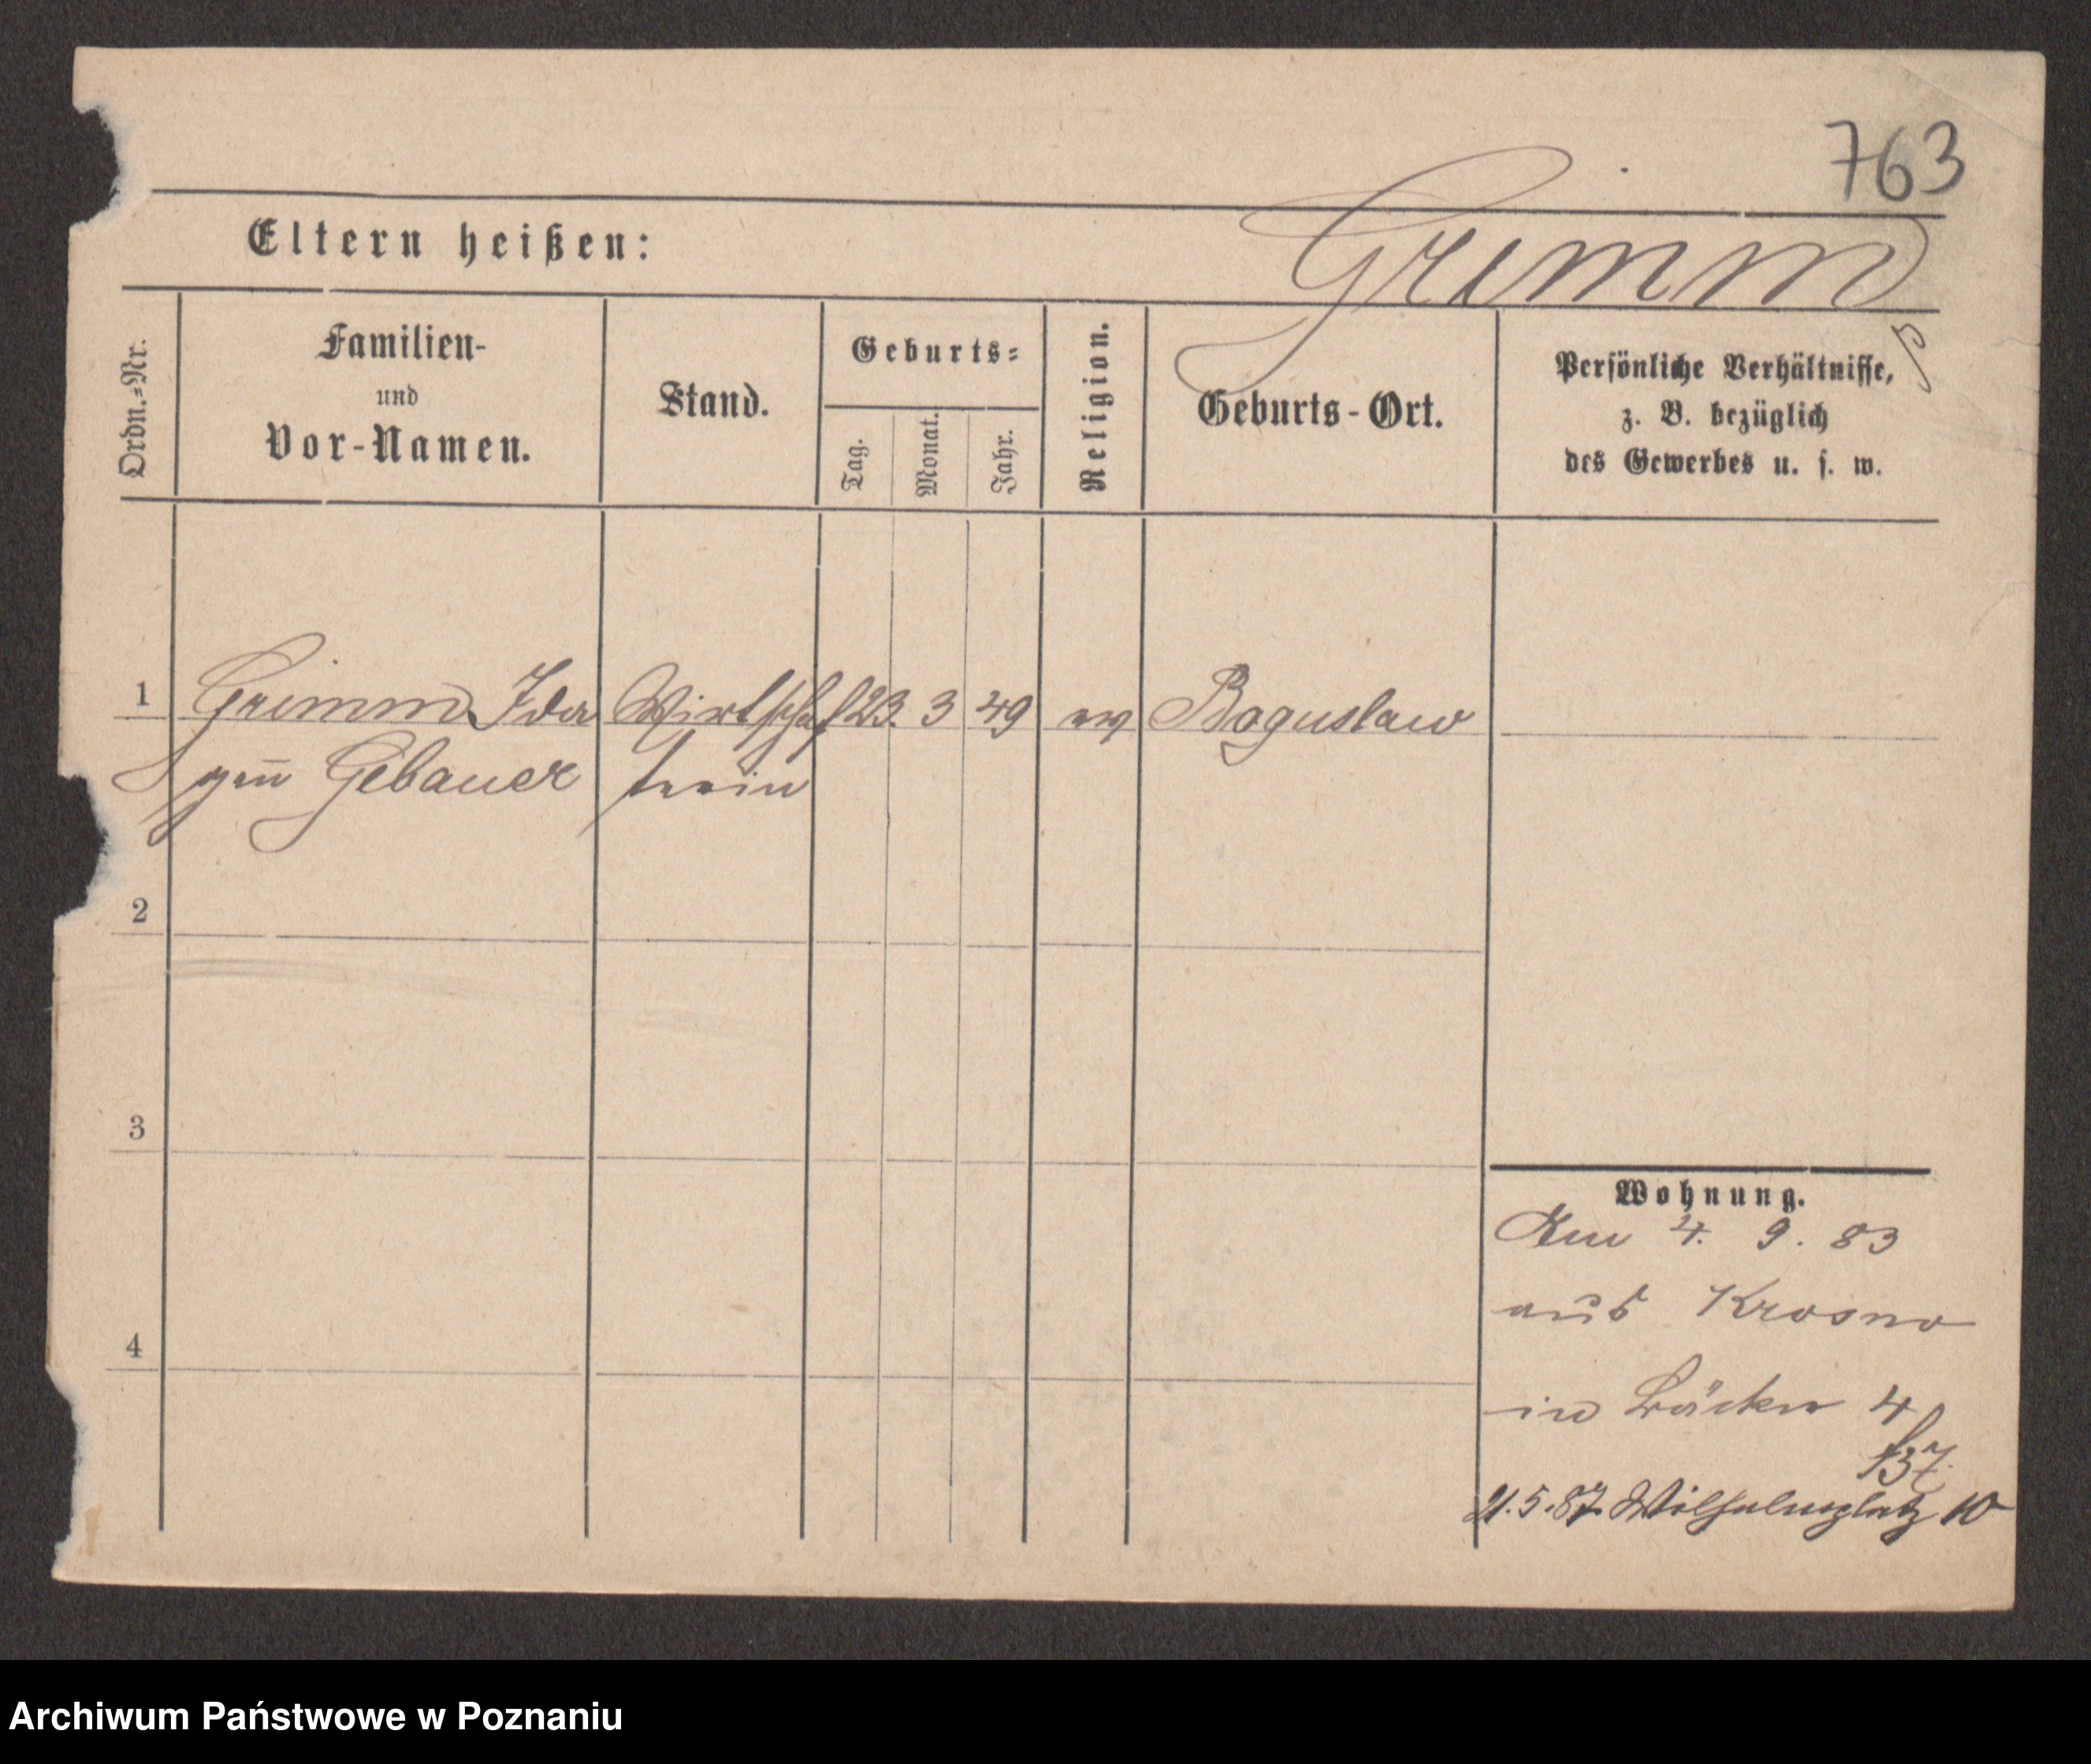 763
Eltern heißen:
Grimm
Ordn.=Nr.
Familien-
und
Vor-Namen.
Stand.
Geburts=
Tag.
Monat.
Jahr.
Religion.
Geburts-Ort.
Persönliche Verhältnisse,
z. B. bezüglich
des Gewerbes u. s. w.
1 Grimm Ida Wirtschaf 23. 3 49 ev Boguslaw
Gebauer terin
2
3
4
Wohnung.
Am 4. 9. 83
aus Krosno
in Bäcker 4
21.5.87 Wilhelmsplatz 10
Archiwum Państwowe w Poznaniu